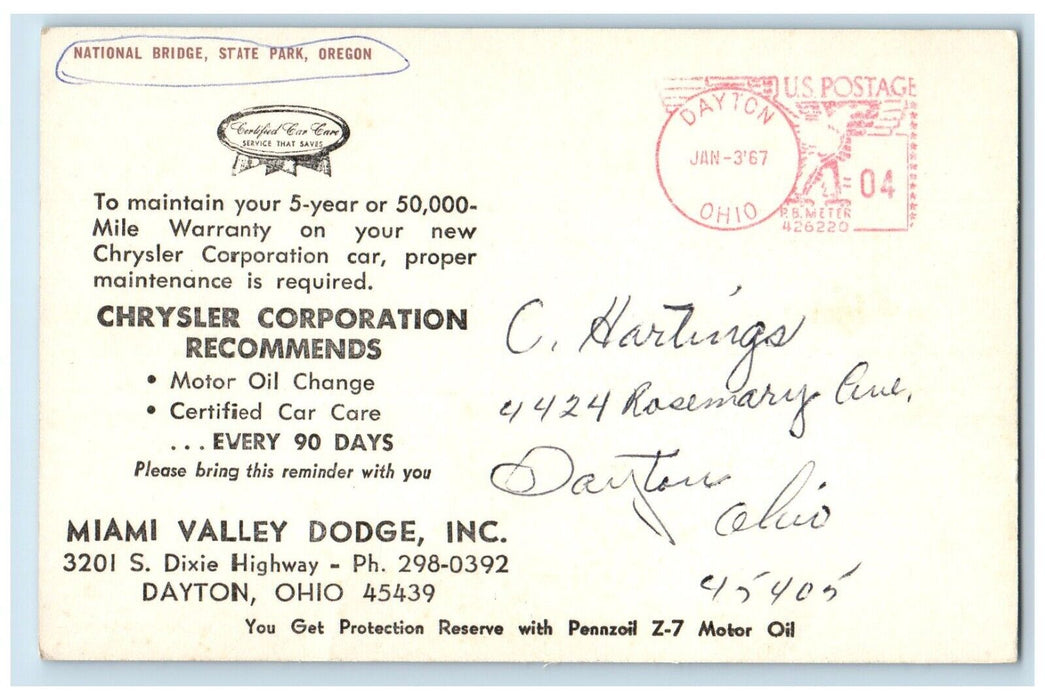 NATIONAL BRIDGE, STATE PARK, OREGON
Certified Car Care
SERVICE THAT SAVES
To maintain your 5-year or 50,000-
Mile Warranty on your new
Chrysler Corporation car, proper
maintenance is required.
CHRYSLER CORPORATION
RECOMMENDS
• Motor Oil Change
• Certified Car Care
...EVERY 90 DAYS
Please bring this reminder with you
MIAMI VALLEY DODGE, INC.
3201 S. Dixie Highway - Ph. 298-0392
DAYTON, OHIO 45439
You Get Protection Reserve with Pennzoil Z-7 Motor Oil
DAYTON
JAN-3'67
OHIO
U.S. POSTAGE
04
P.B. METER
426220
C. Hartings
4424 Rosemary Ave.
Dayton
Ohio
45405